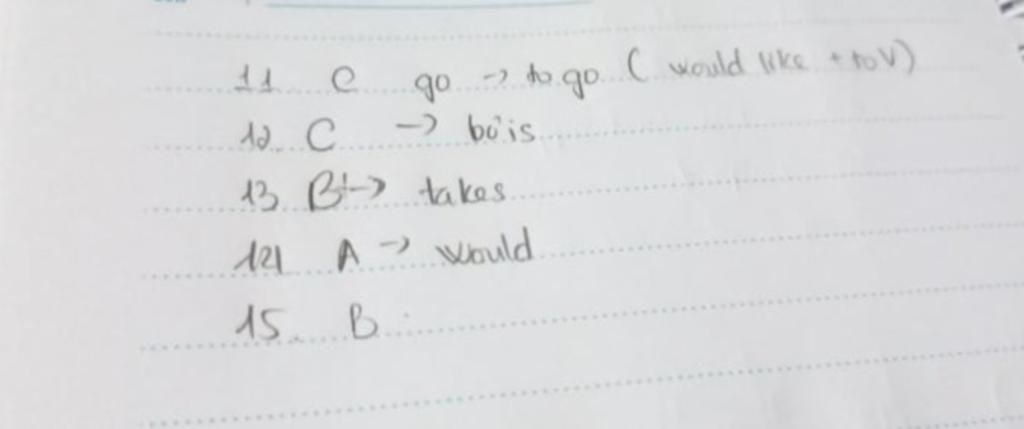 11 C go → to go ( would like + to V)
12. C → bỏ is
13 B → takes
14 A → would
15. B